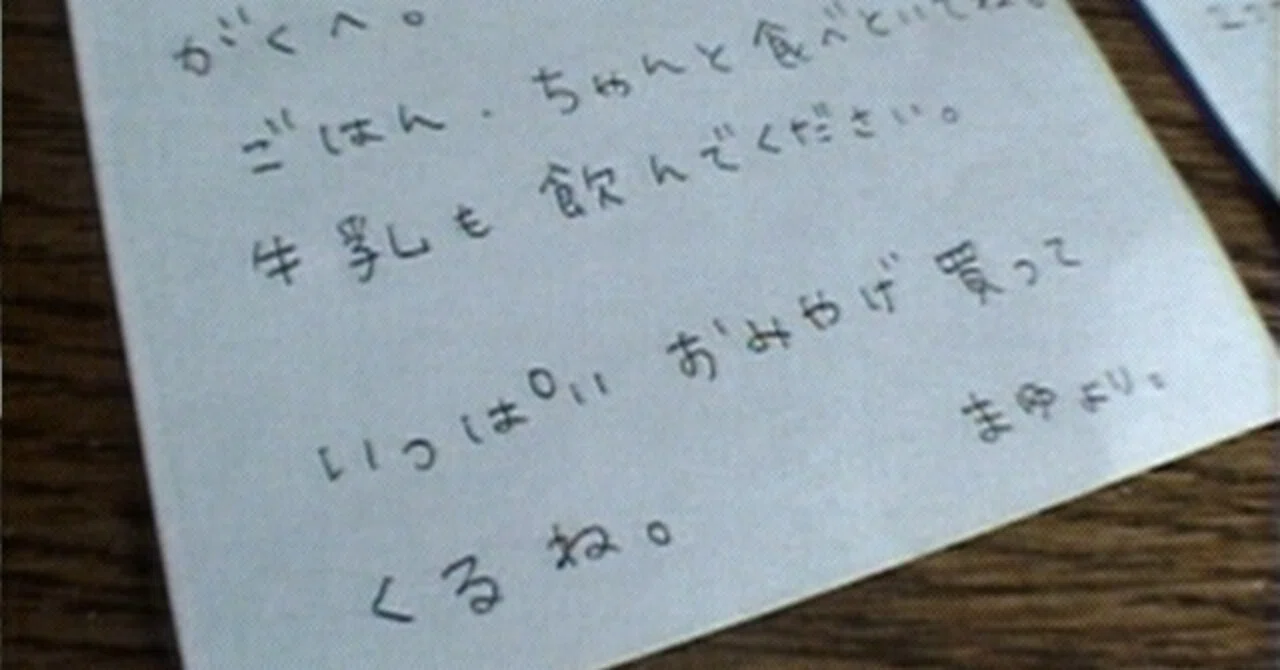 がくへ。
ごはん、ちゃんと食べといてね。
牛乳も飲んでください。
いっぱいおみやげ買って
くるね。
まゆより。